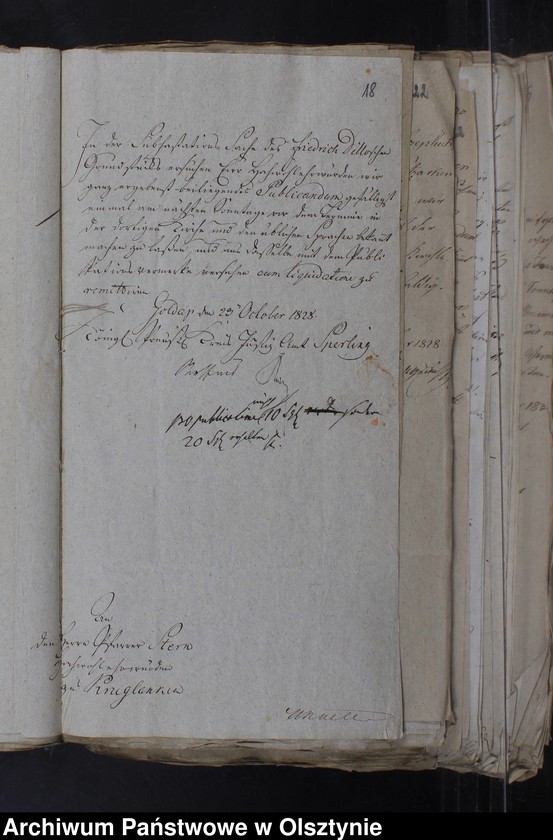 18
In der Subhastations Sache des Friedrich Dilloschen
Grundstücks ersuchen Euer Hochwohlehrwürden wir
ganz ergebenst beiliegendes Publicandum gefälligst
einmal am nächsten Sonntage vor dem Termine in
der dortigen Kirche und den üblichen Sprachen bekannt
machen zu lassen, und uns dasselbe mit dem Publi
kations vermerke versehen cum liquidatione zu
remittiren
Goldap den 23 October 1828
Königl Preuß. Kreis Justiz Amt Sperling
pro publicatione nicht 10 Sg sondern
20 Sg erhalten
An
den Herrn Pfarrer Stern
Hochwohlehrwürden
zu Kruglanken
22
1828
Archiwum Państwowe w Olsztynie